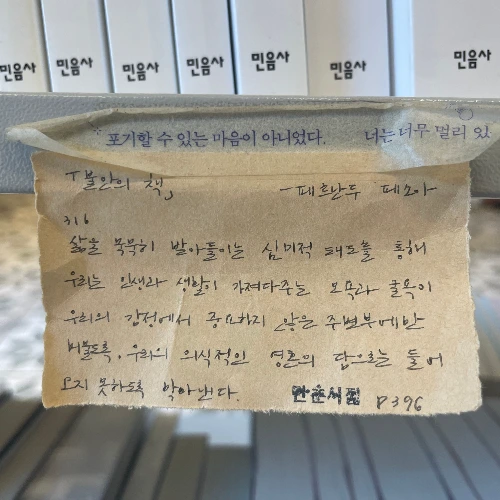 민음사 민음사 민음사 민음사 민음사 민음사 민음사
포기할 수 있는 마음이 아니었다. 너는 너무 멀리 있
「불안의 책」 - 페르난두 페소아
316
삶을 묵묵히 받아들이는 심미적 태도를 통해
우리는 인생과 생활이 가져다주는 모욕과 굴욕이
우리의 감정에서 중요하지 않은 주변부에만
머물도록, 우리의 의식적인 영혼의 담으로는 들어
오지 못하도록 막아낸다.
만춘서점 P396